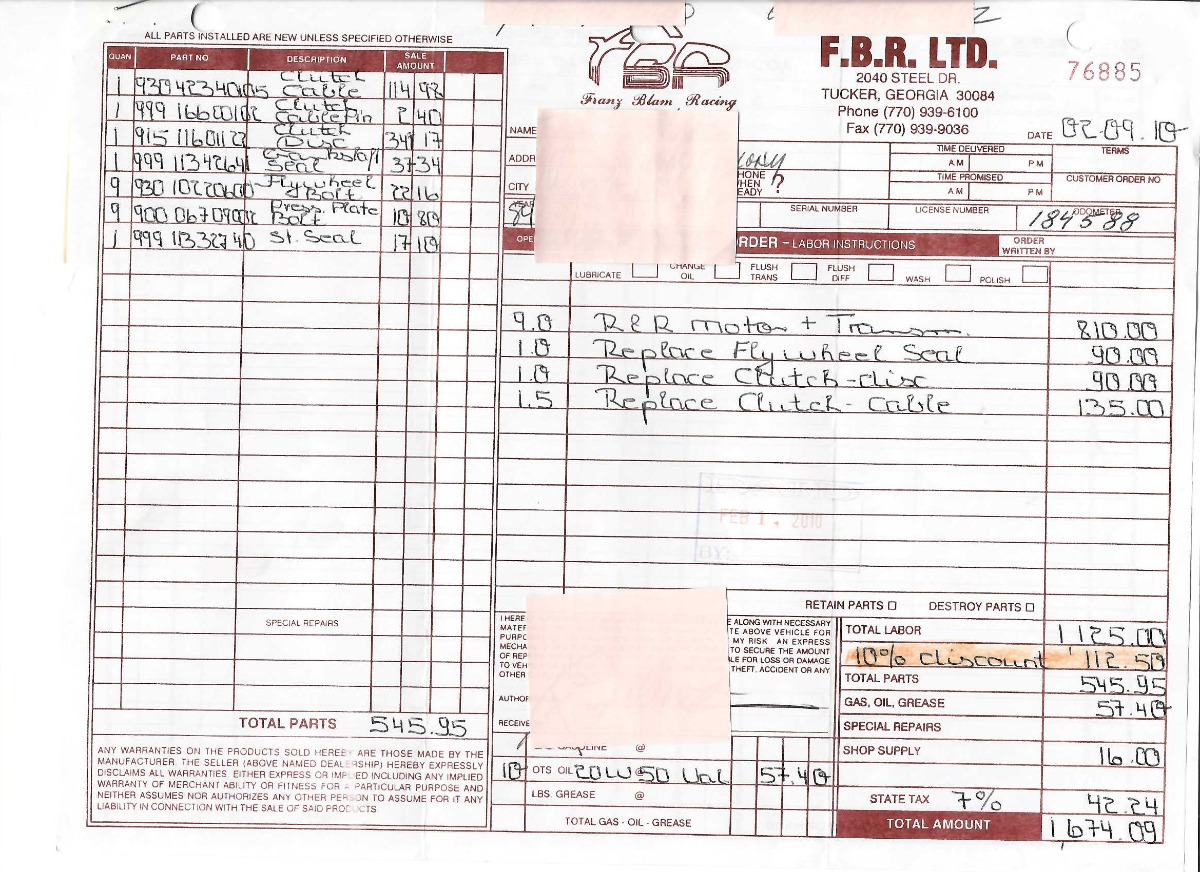 ALL PARTS INSTALLED ARE NEW UNLESS SPECIFIED OTHERWISE
QUAN PART NO DESCRIPTION SALE AMOUNT
1 Clutch Cable 114 92
1 999 Clutch Cable Pin 2 40
1 Clutch Disc 341 17
1 999 Seal 37 34
9 Flywheel Bolt 22 16
9 Press. Plate Bolt 10 80
1 St. Seal 17 10
SPECIAL REPAIRS
TOTAL PARTS 545.95
ANY WARRANTIES ON THE PRODUCTS SOLD HEREBY ARE THOSE MADE BY THE
MANUFACTURER. THE SELLER (ABOVE NAMED DEALERSHIP) HEREBY EXPRESSLY
DISCLAIMS ALL WARRANTIES. EITHER EXPRESS OR IMPLIED INCLUDING ANY IMPLIED
WARRANTY OF MERCHANT ABILITY OR FITNESS FOR A PARTICULAR PURPOSE AND
NEITHER ASSUMES NOR AUTHORIZES ANY OTHER PERSON TO ASSUME FOR IT ANY
LIABILITY IN CONNECTION WITH THE SALE OF SAID PRODUCTS.
Franz Blam Racing
F.B.R. LTD.
2040 STEEL DR.
TUCKER, GEORGIA 30084
Phone (770) 939-6100
Fax (770) 939-9036
76885
DATE 02.09.10
NAME
ADDR
CITY
HONE
WHEN
EADY?
TIME DELIVERED
A M P M
TIME PROMISED
A M P M
TERMS
CUSTOMER ORDER NO
YEAR
84
SERIAL NUMBER
LICENSE NUMBER
ODOMETER
184588
OPE
ORDER – LABOR INSTRUCTIONS
ORDER WRITTEN BY
LUBRICATE CHANGE OIL FLUSH TRANS FLUSH DIFF WASH POLISH
9.0 R & R motor + Transm. 810.00
1.0 Replace Flywheel Seal 90.00
1.0 Replace Clutch-disc 90.00
1.5 Replace Clutch-Cable 135.00
FEB 1 , 2010
BY:
RETAIN PARTS DESTROY PARTS
I HERE
MATER
PURPO
MECHA
OF REP
TO VEH
OTHER
E ALONG WITH NECESSARY
TE ABOVE VEHICLE FOR
MY RISK AN EXPRESS
TO SECURE THE AMOUNT
LE FOR LOSS OR DAMAGE
THEFT, ACCIDENT OR ANY
AUTHOR
RECEIVE
TOTAL LABOR 1125.00
10% discount 112.50
TOTAL PARTS 545.95
GAS, OIL, GREASE 57.40
SPECIAL REPAIRS
SHOP SUPPLY 16.00
STATE TAX 7% 42.24
TOTAL AMOUNT 1674.09
@
10 QTS OIL 20W50 Val 57.40
LBS. GREASE @
TOTAL GAS - OIL - GREASE